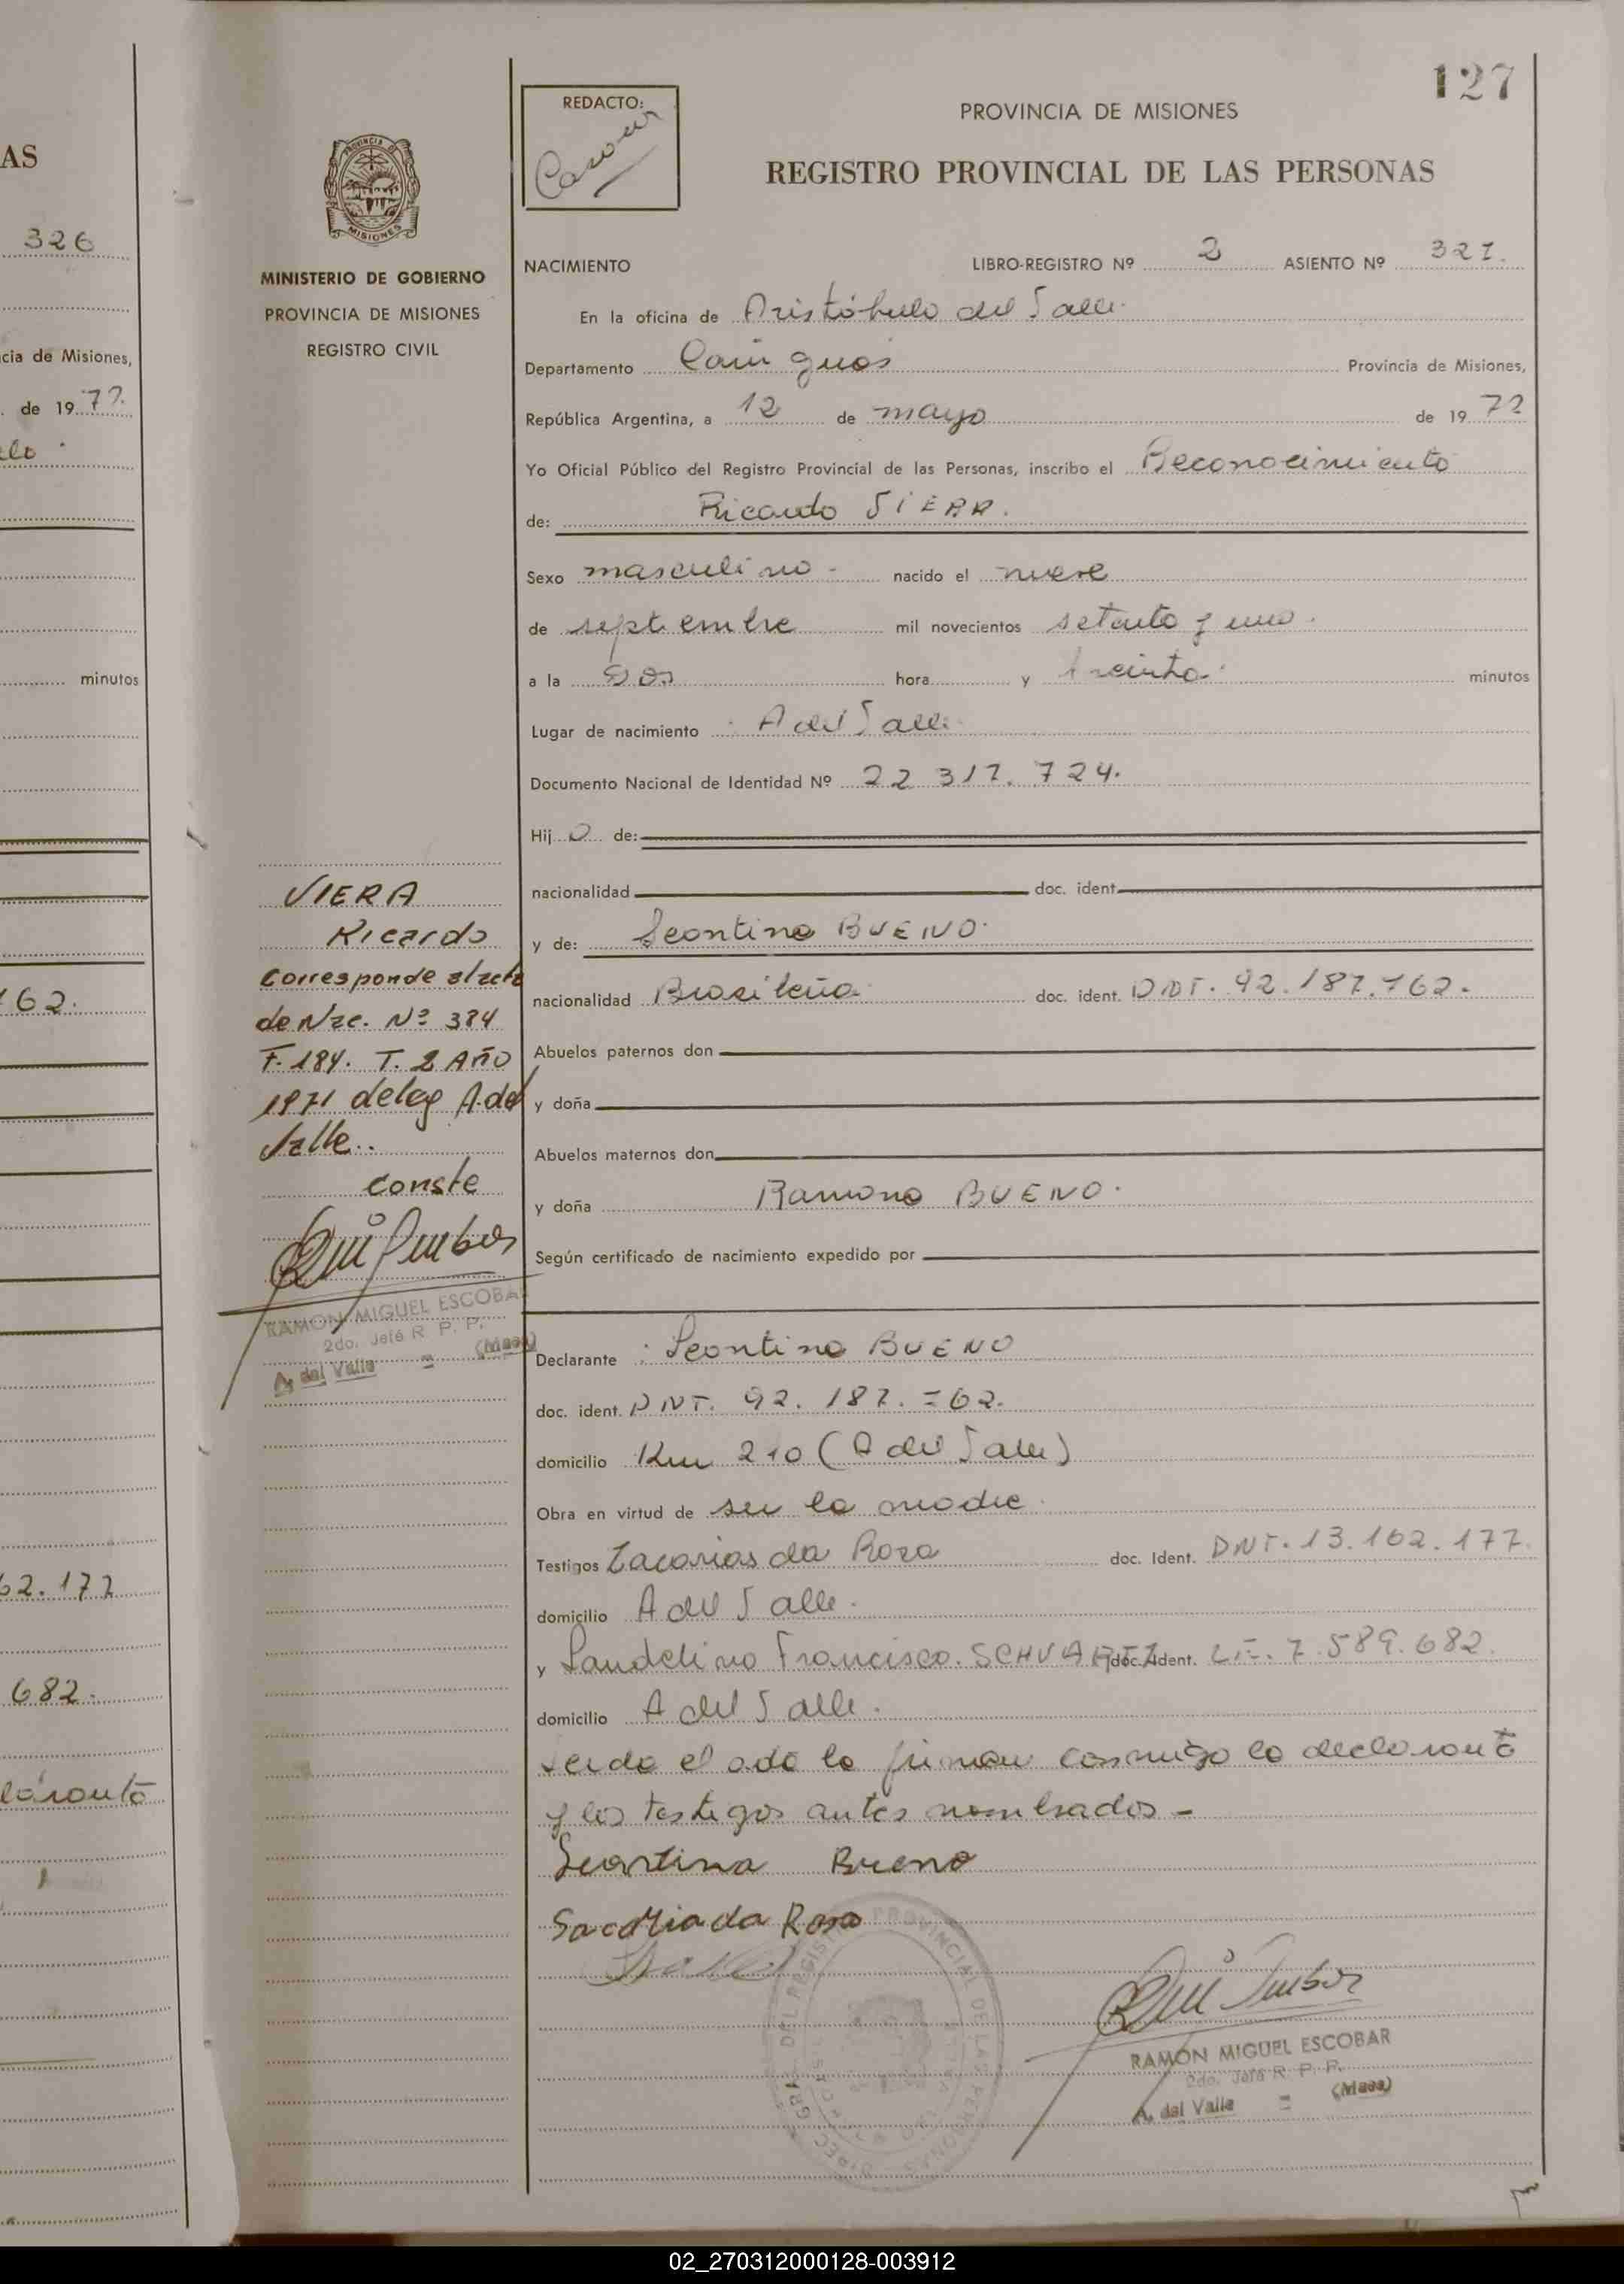 127
REDACTO:
PROVINCIA DE MISIONES
REGISTRO PROVINCIAL DE LAS PERSONAS
PROVINCIA DE
MISIONES
MINISTERIO DE GOBIERNO
PROVINCIA DE MISIONES
REGISTRO CIVIL
NACIMIENTO LIBRO-REGISTRO Nº 2 ASIENTO Nº 327.
En la oficina de Aristóbulo del Valle.
Departamento Cainguás Provincia de Misiones,
República Argentina, a 12 de mayo de 1972
Yo Oficial Público del Registro Provincial de las Personas, inscribo el Reconocimiento
de: Ricardo VIERA.
Sexo masculino - nacido el nueve
de septiembre mil novecientos setenta y uno.
a la dos hora y treinta. minutos
Lugar de nacimiento A del Valle.
Documento Nacional de Identidad Nº 22 317. 724.
Hijo de:
nacionalidad doc. ident.
y de: Leontina BUENO.
nacionalidad Brasileña doc. ident. DNI. 92.187.162.
Abuelos paternos don
y doña
Abuelos maternos don
y doña Ramona BUENO.
Según certificado de nacimiento expedido por
Declarante Leontina BUENO
doc. ident. DNI. 92. 187. 162.
domicilio Km 210 (A del Valle)
Obra en virtud de ser la madre
Testigos Zacarias da Rosa doc. Ident. DNI. 13.102.177.
domicilio A del Valle.
y Laudelino Francisco. SCHVARTZ doc. Ident. L.E. 7.589.682.
domicilio A del Valle.
Leida el acta la firman conmigo la declarante
y los testigos antes nombrados -
Leontina Bueno
Sacaria da Rosa
RAMON MIGUEL ESCOBAR
2do. Jefe R. P. P.
A. del Valle = (Mnes)
VIERA
Ricardo
Corresponde al acta
de Nac. Nº 384
F. 184. T. 2 Año
1971 deleg A. del
Valle..
conste
RAMON MIGUEL ESCOBAR
2do. Jefe R. P. P.
A. del Valle = (Mnes)
AS
326
cia de Misiones,
. de 1972.
minutos
162.
62.177
682.
larante
02_270312000128-003912